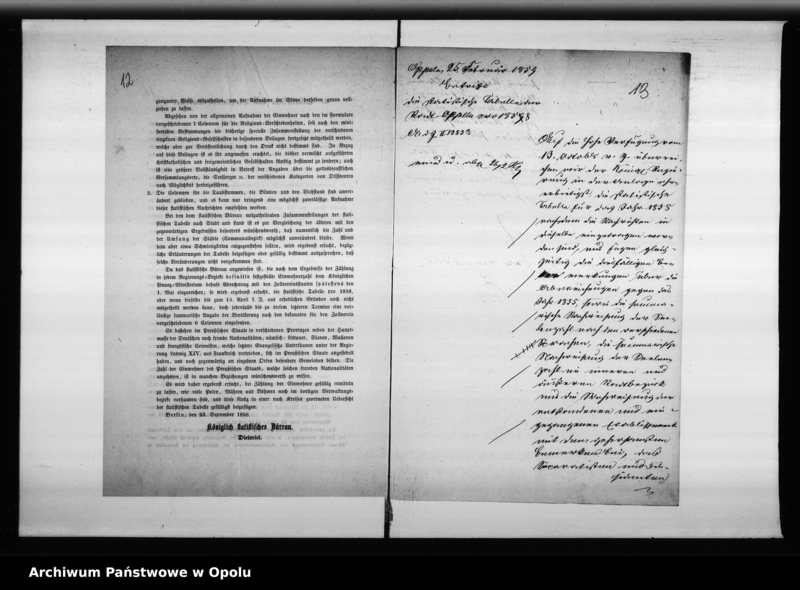 12
geeigneter Weise mitzutheilen, um die Aufnahme im Sinne derselben genau voll-
ziehen zu lassen.
Abgesehen von der allgemeinen Aufnahme der Einwohner nach den im Formulare
vorgeschriebenen 7 Colonnen für die Religions-Verschiedenheiten, soll nach den mini-
steriellen Bestimmungen die bisherige specielle Zusammenstellung der verschiedenen
einzelnen Religions-Gesellschaften in besonderen Beilagen fortgesetzt mitgetheilt werden,
welche aber zur Veröffentlichung durch den Druck nicht bestimmt sind. In Bezug
auf diese Beilagen ist es für angemessen erachtet, die bisher vermischt aufgeführten
deutschkatholischen und freigemeindlichen Gesellschaften künftig bestimmt zu sondern; auch
ist eine größere Vollständigkeit in Betreff der Angaben über die gottesdienstlichen
Versammlungsorte, die Seelsorger ꝛc. der verschiedenen Kategorien von Dissidenten
nach Möglichkeit herbeizuführen.
5. Die Colonnen für die Taubstummen, die Blinden und den Viehstand sind unver-
ändert geblieben, und es kann nur dringend eine möglichst zuverlässige Aufnahme
dieser statistischen Nachrichten empfohlen werden.
Bei den dem statistischen Büreau mitzutheilenden Zusammenstellungen der statisti-
schen Tabelle nach Stadt und Land ist es zur Vergleichung der älteren mit den
gegenwärtigen Ergebnissen besonders wünschenswerth, daß namentlich die Zahl und
der Umfang der Städte (Communalbezirk) möglichst unverändert bleibe. Wenn
dem aber etwa Schwierigkeiten entgegenstehen sollten, wird ergebenst ersucht, bezüg-
liche Erläuterungen der Tabelle beizufügen oder gefällig bestimmt auszusprechen, daß
solche Veränderungen nicht vorgekommen sind.
Da das statistische Büreau angewiesen ist, die nach dem Ergebnisse der Zählung
in jedem Regierungs-Bezirke definitiv festgestellte Einwohnerzahl dem Königlichen
Finanz-Ministerium behufs Abrechnung mit den Zollvereinsstaaten spätestens den
1. Mai einzureichen; so wird ergebenst ersucht, die statistische Tabelle pro 1858,
oder wenn dieselbe bis zum 15. April l. J. aus erheblichen Gründen noch nicht
mitgetheilt werden kann, doch jedenfalls bis zu diesem letzteren Termine eine vor-
läufige summarische Angabe der Bevölkerung nach den bekannten für den Zollverein
vorgeschriebenen 6 Colonnen einzusenden.
Es bestehen im Preußischen Staate in verschiedenen Provinzen neben der Haupt-
masse der Deutschen noch fremde Nationalitäten, nämlich: Litauer, Slaven, Wallonen
und französische Colonisten, welche letztere Evangelische Unterthanen unter der Regie-
rung Ludwig XIV. aus Frankreich vertrieben, sich im Preußischen Staate angesiedelt
haben, und noch gegenwärtig an einzelnen Orten besondere Gemeinden bilden. Die
Zahl der Einwohner des Preußischen Staats, welche solchen fremden Nationalitäten
angehören, ist in manchen Beziehungen wünschenswerth zu wissen.
Es wird daher ergebenst ersucht, bei Zählung der Einwohner gefällig ermitteln
zu lassen, wie viele Polen, Mähren und Böhmen noch im dortigen Verwaltungs-
bezirke vorhanden sind, und diese Notiz in einer nach Kreisen geordneten Uebersicht
der statistischen Tabelle gefälligst beizufügen.
Berlin, den 23. September 1858.
Königlich statistisches Büreau.
Dieterici.
Oppeln, 25. Februar 1859
13
die statistische Tabelle der
Stadt Oppeln pro 1858
Auf die hohe Verfügung vom
13. October v. J. überrei-
chen wir der König. Regie-
rung in der Anlage
die statistische
Tabelle für das Jahr 1858
nachdem die Nachrichten in
dieselbe eingetragen wor-
den sind, und fügen gleich-
zeitig die
merkungen über die
Abweichungen gegen das
Jahr 1855, sowie die summa-
rische Nachweisung der See-
lenzahl nach den verschiedenen
Sprachen, die summarische
Nachweisung der Seelen-
zahl im inneren und
äußeren Stadtbezirk
und die Nachweisung der
entstandenen und ein-
gegangenen Etablissements
mit dem gehorsamsten
Bemerken bei, daß
Separatisten und Dis-
sidenten
Archiwum Państwowe w Opolu